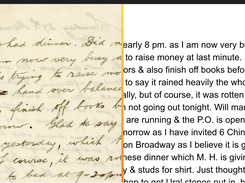 had dinner. Did n
now very busy
trying to raise mo
hand over balance
finish off books b
row. Glad to say
yesterday, which
f course, it was ro
to bed at 9-20pm
early 8 pm. as I am now very b
to raise money at last minute.
ors & also finish off books befo
to say it rained heavily the who
ally, but of course, it was rotten
not going out tonight. Will mar
are running & the P.O. is open
morrow as I have invited 6 Chin
on Broadway as I believe it is g
nese dinner which M. H. is givin
y & studs for shirt. Just thought
hon to get Ural stones put in, b